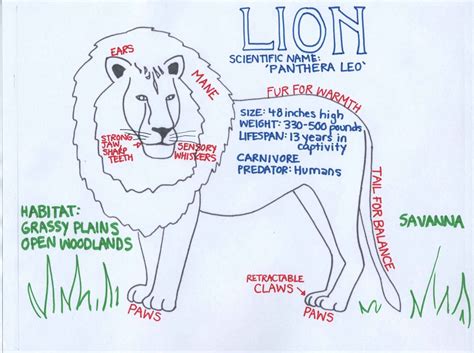 LION
SCIENTIFIC NAME:
'PANTHERA LEO'
EARS
MANE
FUR FOR WARMTH
SIZE: 48 inches high
WEIGHT: 330-500 pounds
LIFESPAN: 13 years in
captivity
CARNIVORE
PREDATOR: Humans
STRONG
JAW,
SHARP
TEETH
SENSORY
WHISKERS
TAIL FOR BALANCE
HABITAT:
GRASSY PLAINS
OPEN WOODLANDS
SAVANNA
RETRACTABLE
CLAWS
PAWS
PAWS